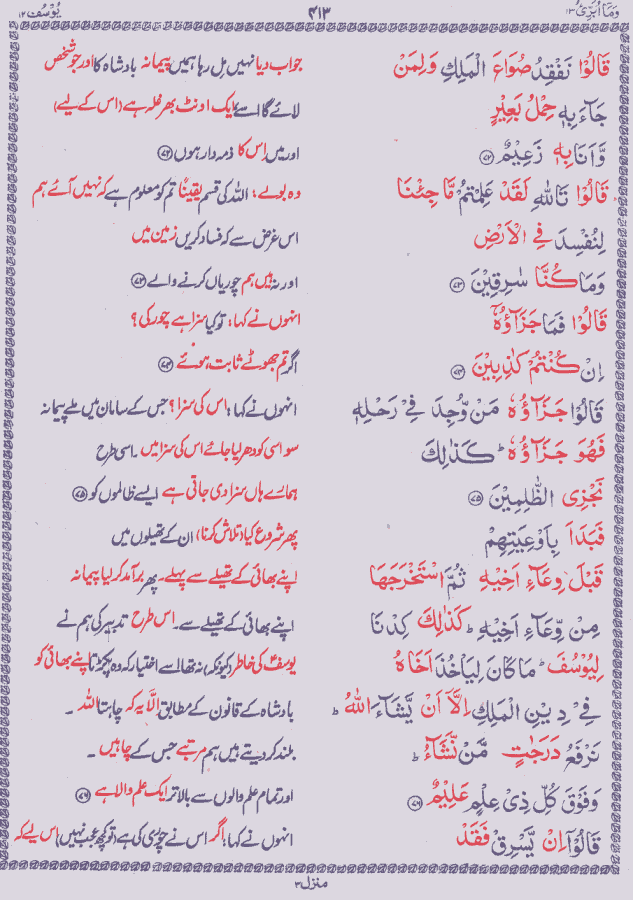 وَمَآ اُبَرِّئُ ۱۳
۴۱۳
یُوْسُف ۱۲
قَالُوْا نَفْقِدُ صُوَاعَ الْمَلِكِ وَلِمَنْ
جواب دیا نہیں مل رہا ہمیں پیمانہ بادشاہ کا اور جو شخص
جَآءَ بِهٖ حِمْلُ بَعِيْرٍ
لائے گا اسے ایک اونٹ بھر غلہ ہے (اس کے لیے)
وَّاَنَا بِهٖ زَعِيْمٌ ﴿۷۲﴾
اور میں اس کا ذمہ دار ہوں ﴿۷۲﴾
قَالُوْا تَاللّٰهِ لَقَدْ عَلِمْتُمْ مَّا جِئْنَا
وہ بولے: اللہ کی قسم یقیناً تم کو معلوم ہے کہ نہیں آئے ہم
لِنُفْسِدَ فِي الْاَرْضِ
اس غرض سے کہ فساد کریں زمین میں
وَمَا كُنَّا سٰرِقِيْنَ ﴿۷۳﴾
اور نہ ہیں ہم چوریاں کرنے والے ﴿۷۳﴾
قَالُوْا فَمَا جَزَآؤُهٗٓ
انہوں نے کہا: تو کیا سزا ہے چور کی؟
اِنْ كُنْتُمْ كٰذِبِيْنَ ﴿۷۴﴾
اگر تم جھوٹے ثابت ہوئے ﴿۷۴﴾
قَالُوْا جَزَآؤُهٗ مَنْ وُّجِدَ فِيْ رَحْلِهٖ
انہوں نے کہا: اس کی سزا؟ جس کے سامان میں ملے پیمانہ
فَهُوَ جَزَآؤُهٗ ؕ كَذٰلِكَ
سو اسی کو دھر لیا جائے اس کی سزا میں۔ اسی طرح
نَجْزِي الظّٰلِمِيْنَ ﴿۷۵﴾
ہمارے ہاں سزا دی جاتی ہے ایسے ظالموں کو ﴿۷۵﴾
فَبَدَاَ بِاَوْعِيَتِهِمْ
پھر شروع کیا (تلاش کرنا) ان کے تھیلوں میں
قَبْلَ وِعَآءِ اَخِيْهِ ثُمَّ اسْتَخْرَجَهَا
اپنے بھائی کے تھیلے سے پہلے۔ پھر برآمد کر لیا پیمانہ
مِنْ وِّعَآءِ اَخِيْهِ ؕ كَذٰلِكَ كِدْنَا
اپنے بھائی کے تھیلے سے۔ اس طرح تدبیر کی ہم نے
لِيُوْسُفَ ؕ مَا كَانَ لِيَاْخُذَ اَخَاهُ
یوسفؑ کی خاطر (کیونکہ) نہ تھا اسے اختیار کہ وہ پکڑتا اپنے بھائی کو
فِيْ دِيْنِ الْمَلِكِ اِلَّآ اَنْ يَّشَآءَ اللّٰهُ ؕ
بادشاہ کے قانون کے مطابق اِلّا یہ کہ چاہتا اللہ۔
نَرْفَعُ دَرَجٰتٍ مَّنْ نَّشَآءُ ؕ
بلند کر دیتے ہیں ہم مرتبے جس کے چاہیں۔
وَفَوْقَ كُلِّ ذِيْ عِلْمٍ عَلِيْمٌ ﴿۷۶﴾
اور تمام علم والوں سے بالاتر ایک علم والا ہے ﴿۷۶﴾
قَالُوْٓا اِنْ يَّسْرِقْ فَقَدْ
انہوں نے کہا: اگر اس نے چوری کی ہے (تو کچھ عجب نہیں) اس لیے کہ
منزل ۳